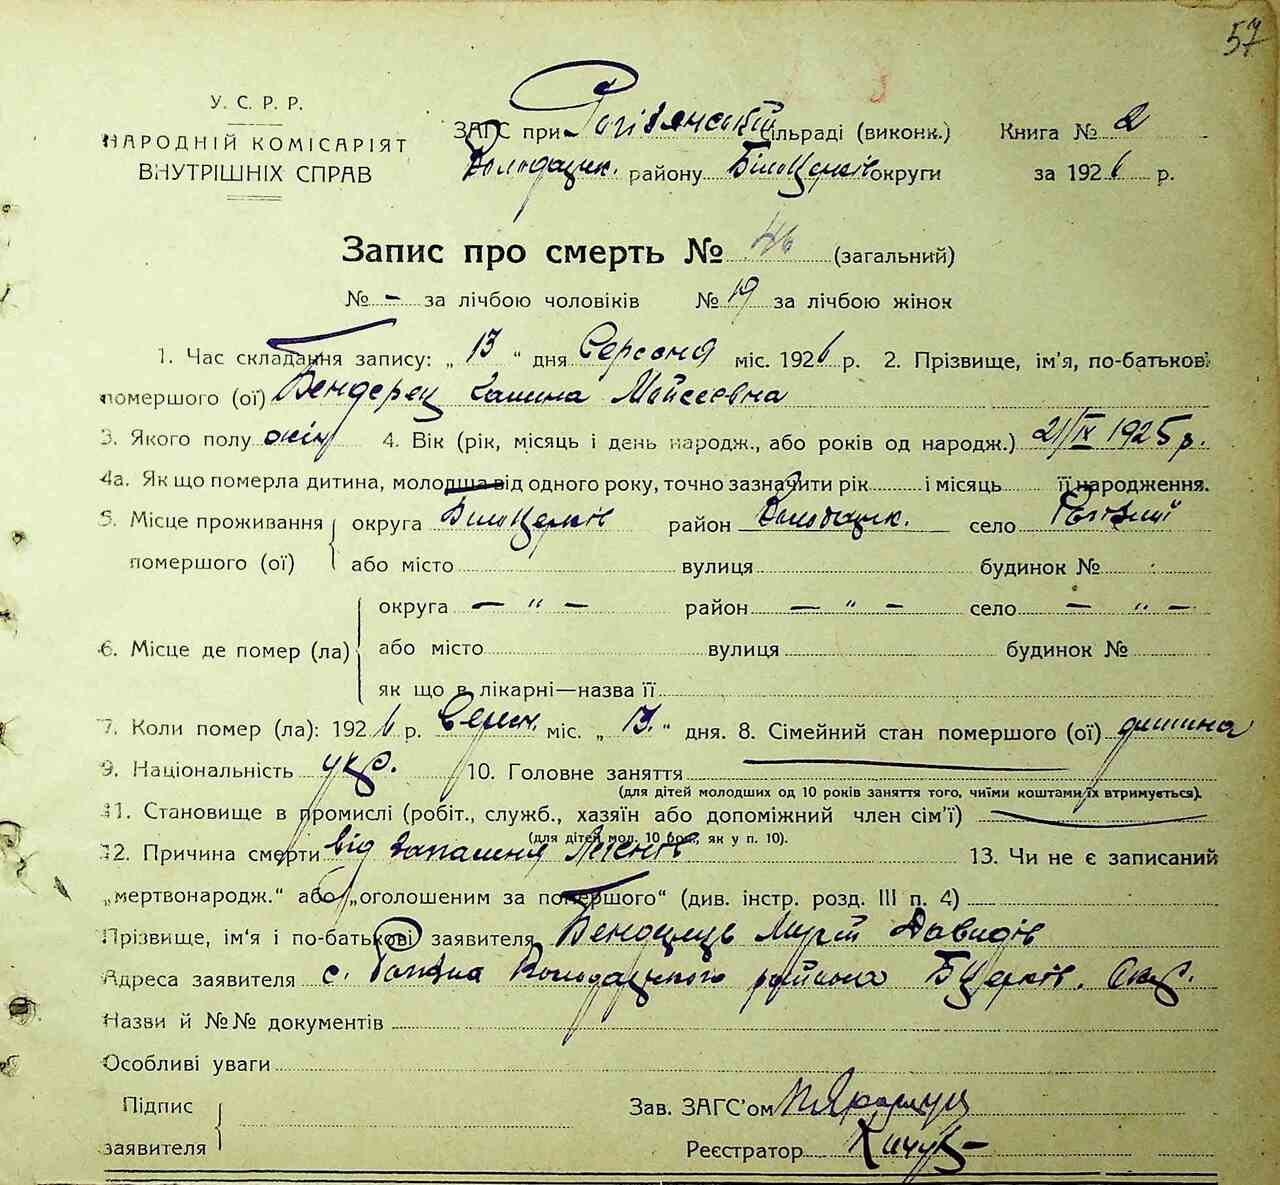 57
У. С. Р. Р.
НАРОДНІЙ КОМІСАРІЯТ
ВНУТРІШНІХ СПРАВ
ЗАГС при сільраді (виконк.) Книга № 2
Володарськ. району БілоЦерків округи за 1926 р.
Запис про смерть № 46 (загальний)
№ – за лічбою чоловіків № 19 за лічбою жінок
1. Час складання запису: „ 13 “ дня міс. 1926 р. 2. Прізвище, ім’я, по-батькові
помершого (ої) Мойсеевна
3. Якого полу 4. Вік (рік, місяць і день народж., або років од народж.) 21/IX 1925 р.
4а. Як що померла дитина, молодша від одного року, точно зазначити рік і місяць її народження.
5. Місце проживання помершого (ої) округа БілоЦерків район Володарськ. село
або місто вулиця будинок №
6. Місце де помер (ла) округа — “ — район — “ — село — “ —
або місто вулиця будинок №
як що в лікарні—назва її
7. Коли помер (ла): 1926 р. Вересн. міс. „ 13. “ дня. 8. Сімейний стан помершого (ої) дитина
9. Національність укр. 10. Головне заняття
(для дітей молодших од 10 років заняття того, чиїми коштами їх втримується).
11. Становище в промислі (робіт., служб., хазяїн або допоміжний член сім’ї)
(для дітей мол. 10 рок., як у п. 10).
12. Причина смерти від запалення 13. Чи не є записаний
„мертвонародж.“ або „оголошеним за помершого“ (див. інстр. розд. III п. 4)
Прізвище, ім’я і по-батькові заявителя Давидів
Адреса заявителя с. Володарського района БЦерків. Окр.
Назви й №№ документів
Особливі уваги
Підпис заявителя
Зав. ЗАГС’ом
Реєстратор